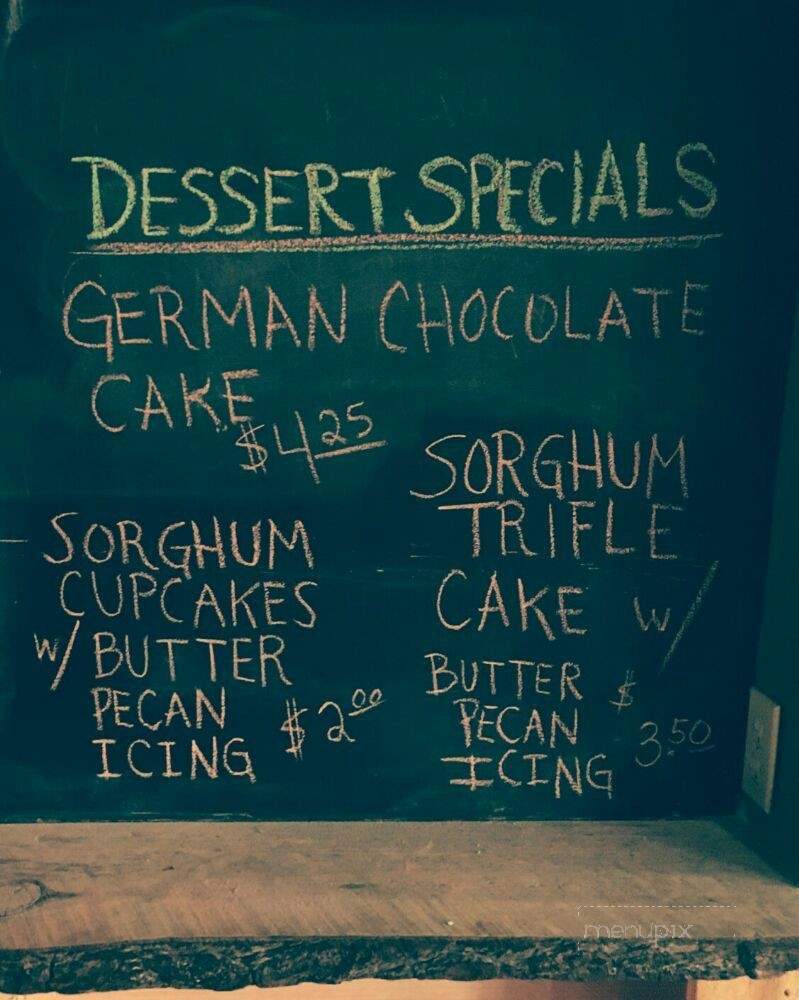 DESSERT SPECIALS
GERMAN CHOCOLATE
CAKE
$4.25
SORGHUM
CUPCAKES
w/ BUTTER
PECAN
ICING
$2.00
SORGHUM
TRIFLE
CAKE w/
BUTTER
PECAN
ICING
$
3.50
menupix